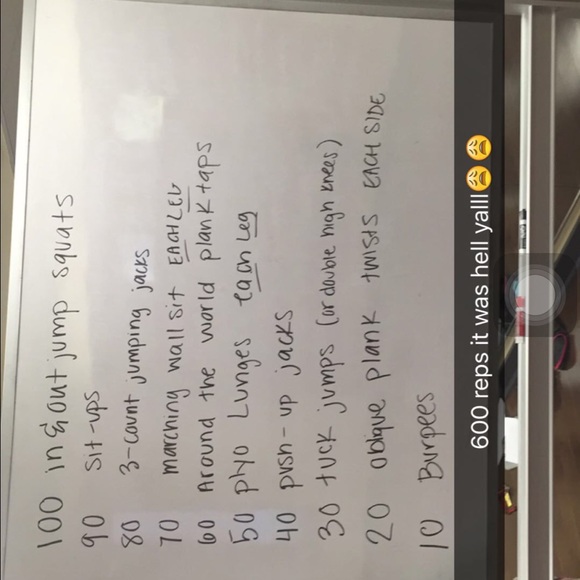 100 in & out jump squats
90 sit-ups
80 3-count jumping jacks
70 marching wall sit EACH LEG
60 Around the world plank taps
50 plyo Lunges each Leg
40 push-up jacks
30 tuck jumps (or double high knees)
20 oblique plank twists EACH SIDE
10 Burpees
600 reps it was hell yalll😤😤